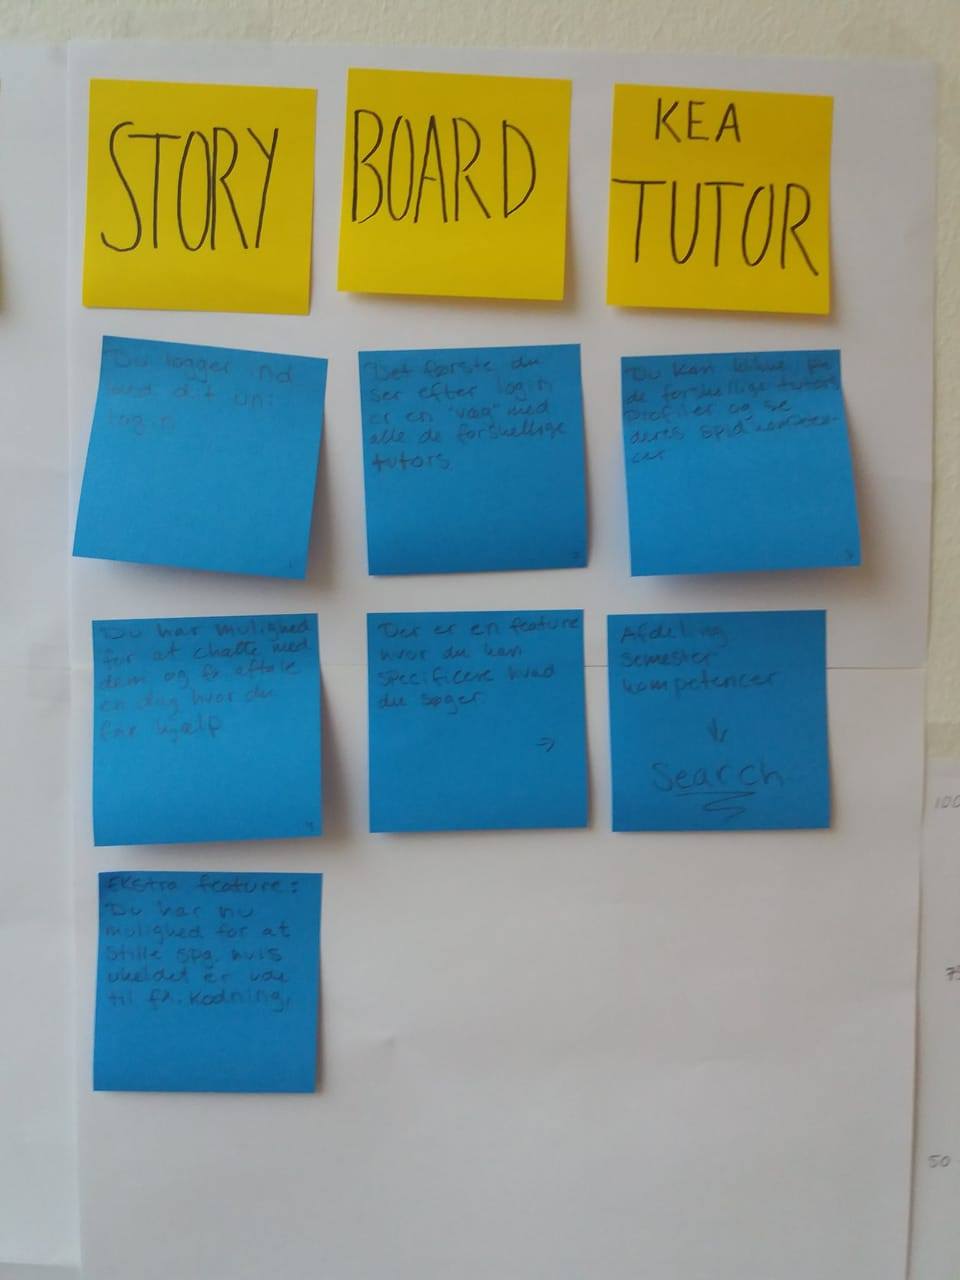 STORY
BOARD
KEA
TUTOR
Du logger ind
med dit uni
login
1
Det første du
ser efter login
er en "væg" med
alle de forskellige
tutors
2
Du kan klikke på
de forskellige tutors
profiler og se
deres spidskompeten-
cer
3
Du har mulighed
for at chatte med
dem og fx aftale
en dag hvor du
får hjælp
4
Der er en feature
hvor du kan
specificere hvad
du søger
→
Afdeling
semester
kompetencer
↓
Search
Ekstra feature:
Du har nu
mulighed for at
stille spg. hvis
uheldet er ude
til fx. kodning,
100
75
50